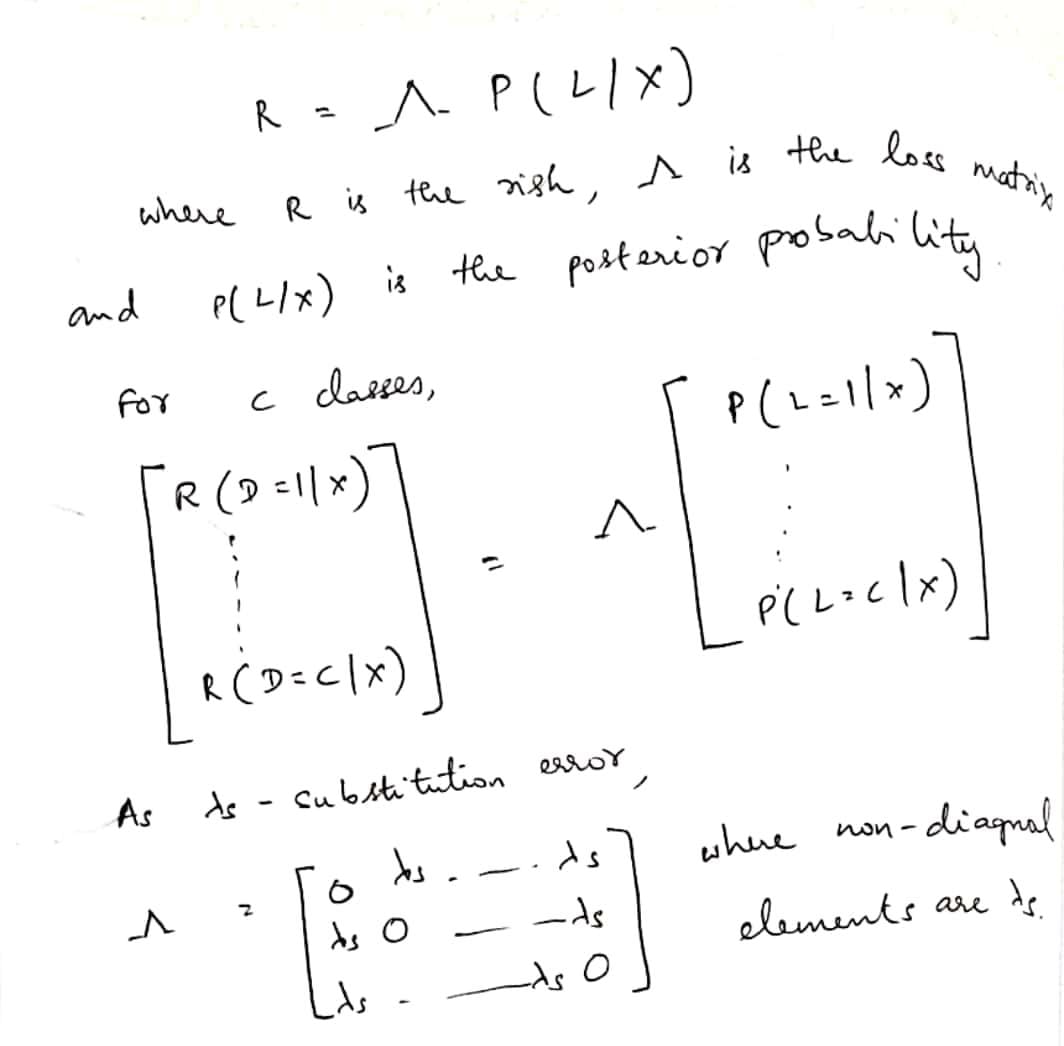 R = Λ P(L/X)
where R is the risk, Λ is the loss matrix
and P(L/x) is the posterior probability.
for c classes,
[R(D=1|x) ⋮ R(D=c|x)] = Λ [P(L=1|x) ⋮ P(L=c|x)]
As λs - substitution error,
Λ = [0 λs . — . λs
λs 0 — — λs
λs - — λs 0] where non-diagnal
elements are λs.